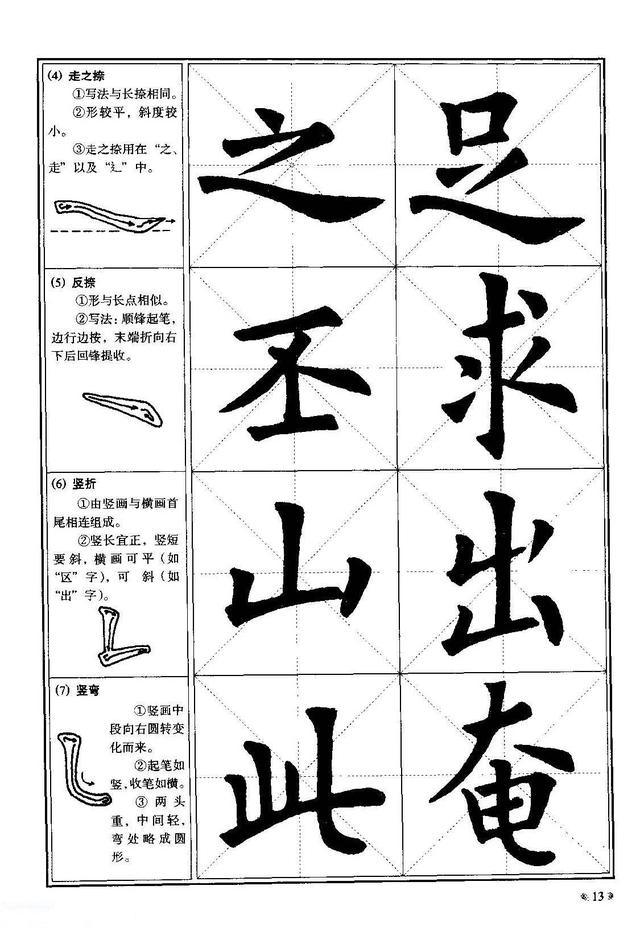 (4) 走之捺
①写法与长捺相同。
②形较平，斜度较
小。
③走之捺用在“之、
走”以及“辶”中。
之 足
(5) 反捺
①形与长点相似。
②写法：顺锋起笔，
边行边按，末端折向右
下后回锋提收。
丕 求
(6) 竖折
①由竖画与横画首
尾相连组成。
②竖长宜正，竖短
要斜，横画可平（如
“区”字），可 斜（如
“出”字）。
山 出
(7) 竖弯
①竖画中
段向右圆转变
化而来。
②起笔如
竖，收笔如横。
③ 两 头
重，中间轻，
弯处略成圆
形。
此 奄
13